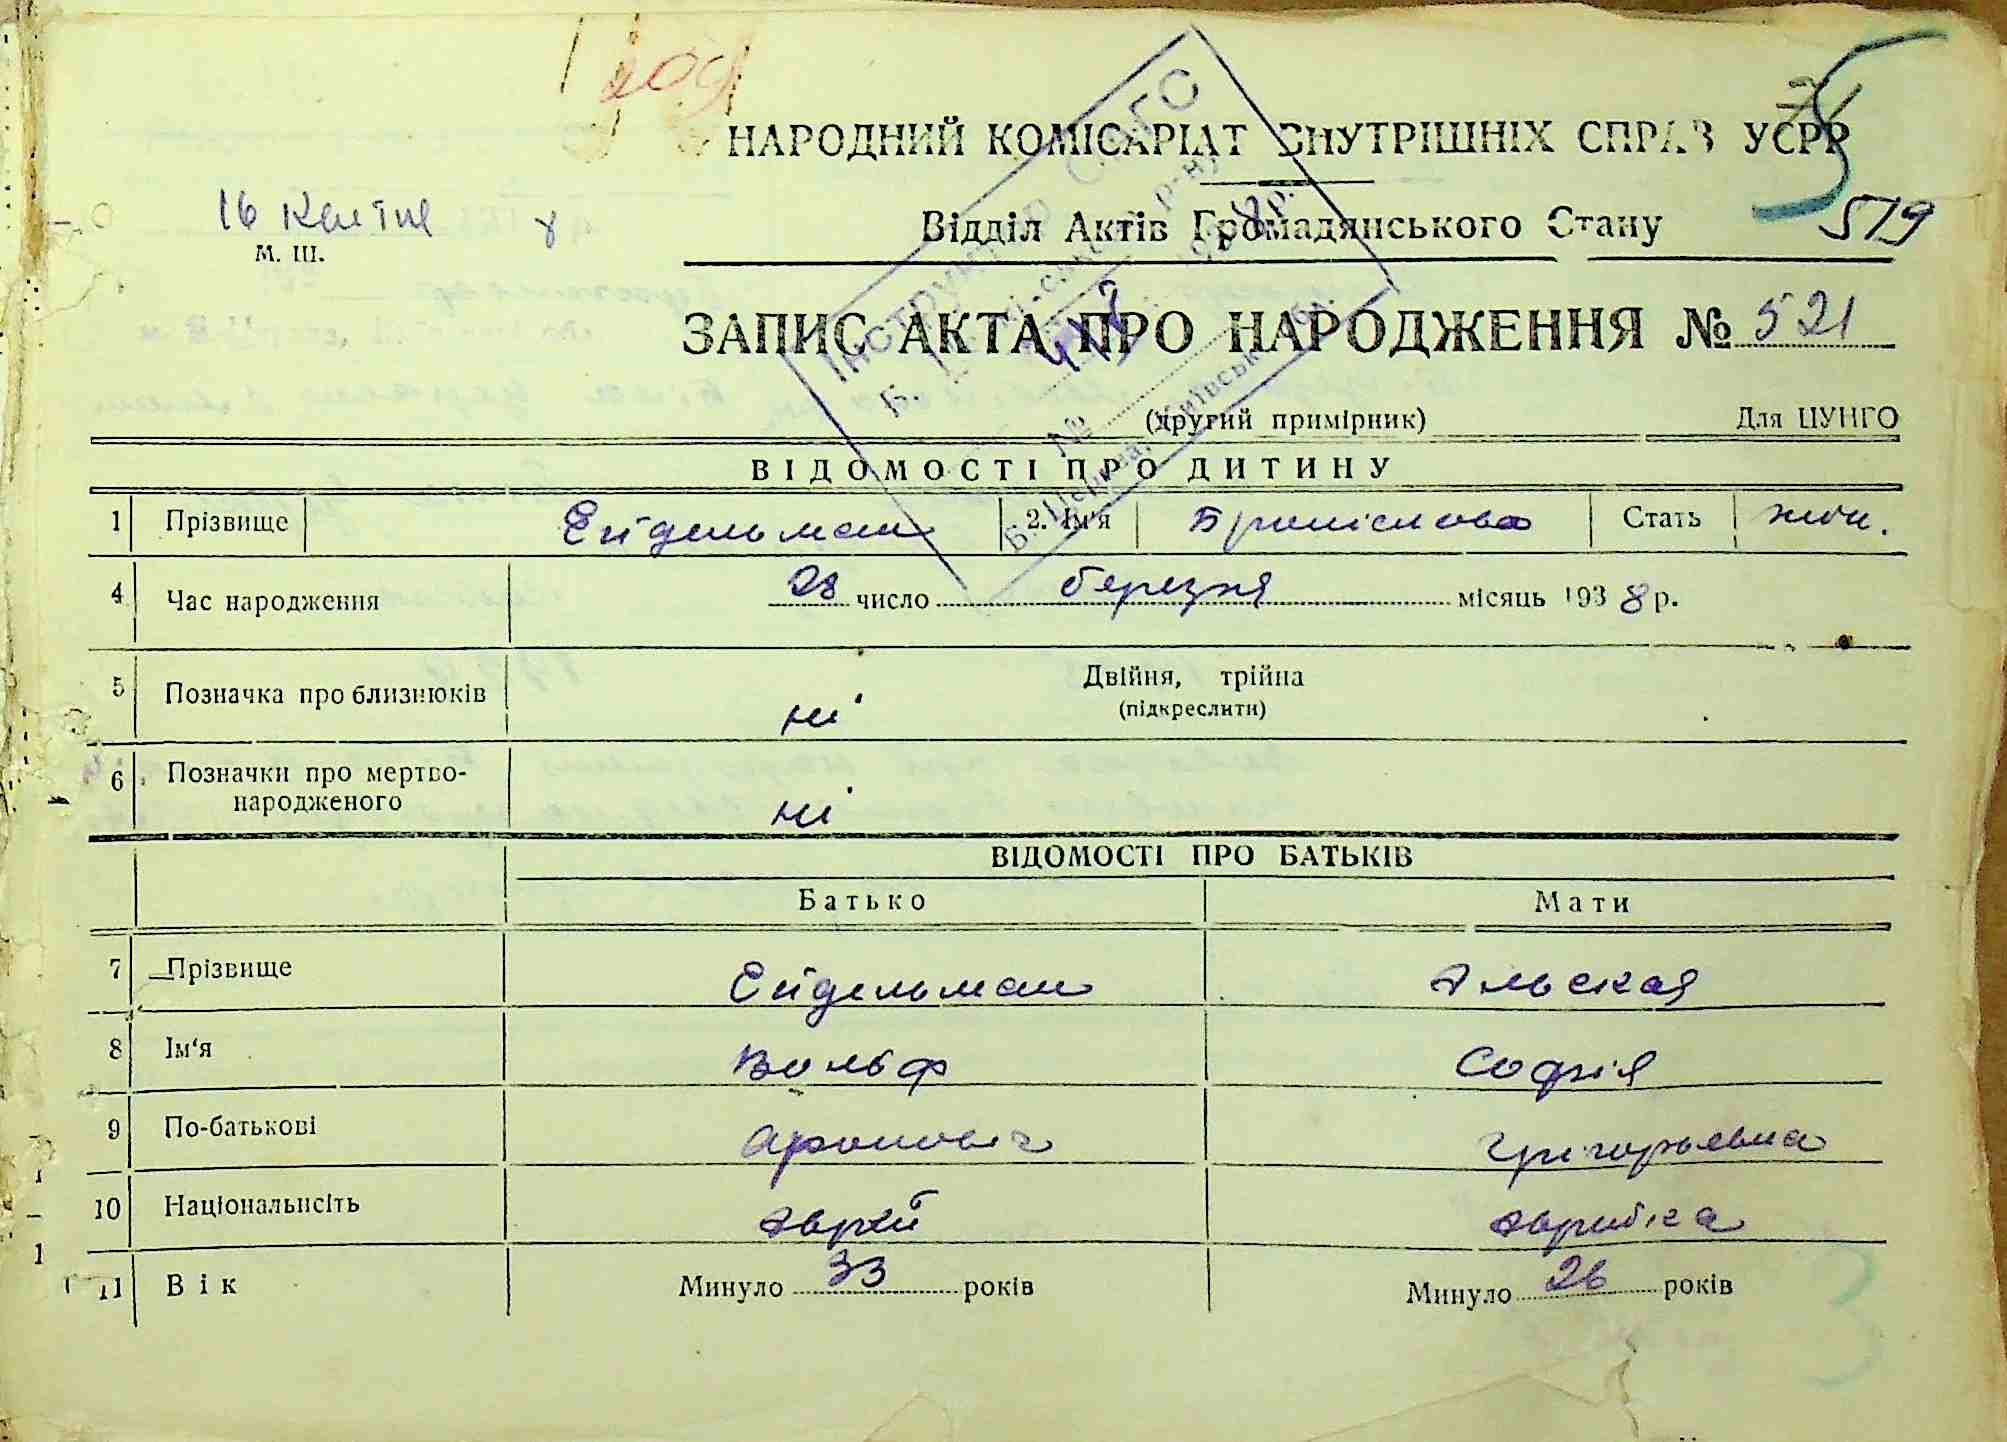 209
75
НАРОДНИЙ КОМІСАРІАТ ВНУТРІШНІХ СПРАВ УСРР
16 квітня 8
М. Ш.
Відділ Актів Громадянського Стану
519
ЗАПИС АКТА ПРО НАРОДЖЕННЯ № 521
(другий примірник) Для ЦУНГО
ВІДОМОСТІ ПРО ДИТИНУ
1 Прізвище Ейдельман 2. Ім'я Броніслава Стать жін.
4 Час народження 28 число березня місяць 1938 р.
5 Позначка про близнюків ні Двійня, трійна
(підкреслити)
6 Позначки про мертво-
народженого ні
ВІДОМОСТІ ПРО БАТЬКІВ
Батько Мати
7 Прізвище Ейдельман Яльская
8 Ім'я Вольф Софія
9 По-батькові Аронович Григорьевна
10 Національність єврей єврейка
11 Вік Минуло 33 років Минуло 26 років